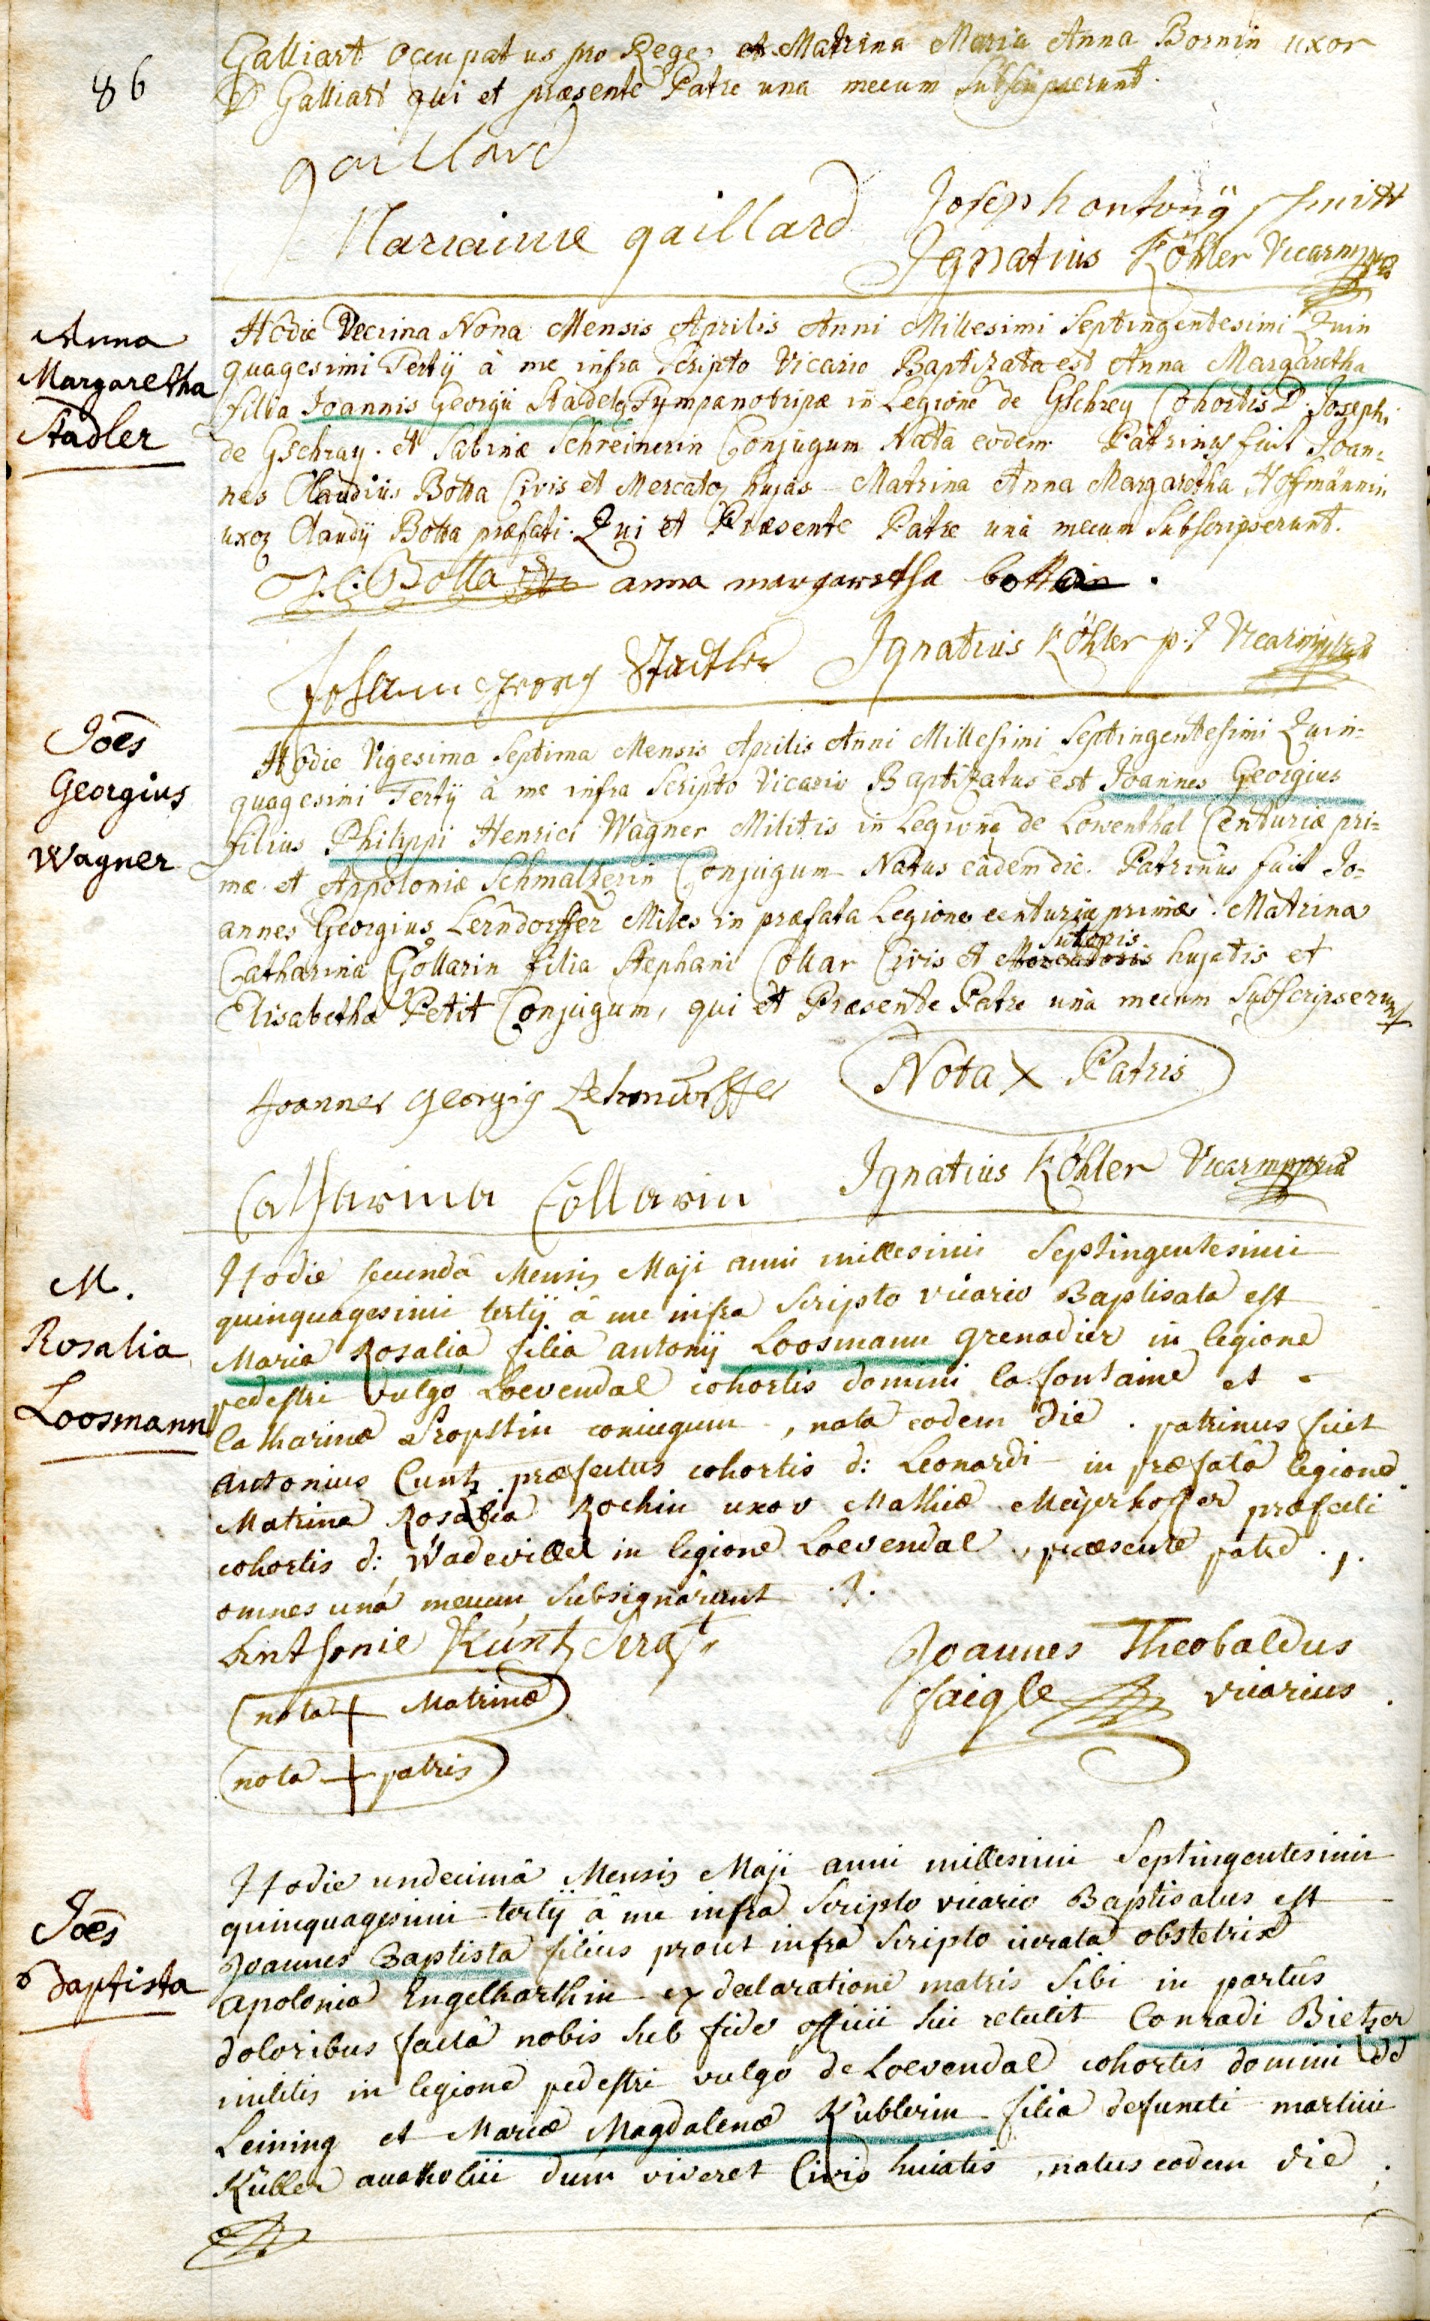 86
Galliart occupatus pro Rege, et Matrina Maria Anna Bornin uxor
D Galliart qui et præsente Patre una mecum Subscripserunt.
gaillard
Mariaine gaillard
Joseph antonÿ Smitt
Ignatius Köhler Vicarius
Anna
Margaretha
Stadler
Hôdie Decima Nona Mensis Aprilis Anni Millesimi Septingentesimi Quin
quagesimi Tertÿ à me infra scripto Vicario Baptizata est Anna Margaretha
filia Joannis Georgii Stadeler Tympanotripæ in Legione de Gschrey Cohortis D. Josephi
de Gschray. et Sabinæ Schreinerin Conjugum Nata eodem Patrinus fuit Joan-
nes Claudius Botta Civis et Mercator hujas Matrina Anna Margaretha Hofmännin
uxor Claudÿ Botta præfati. Qui et Præsente Patre unà mecum Subscripserunt.
J. C. Botta anna margaretha bottain.
Johann georg Stadtler
Ignatius Köhler p.t Vicarius
Joēs
Georgius
Wagner
Hôdie Vigesima Septima Mensis Aprilis Anni Millesimi Septingentesimi Quin-
quagesimi Tertÿ à me infra Scripto Vicario Baptizatus est Joannes Georgius
filius Philippi Henrici Wagner Militis in Legione de Lowenthal Centuriæ pri-
mæ et Appoloniæ Schmalzerin Conjugum Natus eâdem die. Patrinus fuit Jo-
annes Georgius Lerndorffer Miles in præfata Legione centuriæ primæ. Matrina
Catharina Gollarin filia Stephani Collar Civis et Mercatoris Sutoris hujatis et
Elisabetha Petit Conjugum, qui et Præsente Patre unà mecum Subscripserunt
Joannes georgig Lehrndorffer
Nota X Patris
Catharina Collarin
Ignatius Köhler Vicarius
M.
Rosalia
Loosmann
Hodie secundâ Mensis Maji anni millesimi Septingentesimi
quinquagesimi tertÿ â me infra Scripto vicario Baptisata est
Maria Rosalia filia antonÿ Loosmann grenadier in legione
pedestri vulgò Loevendal cohortis domini la fontaine et
Catharinæ Propstin coniugum, nata eodem die. patrinus fuit
Antonius Cuntz præfectus cohortis d: Leonardi in præfatâ legione
Matrina Rosalia Rochin uxor Mathiæ Meijerhoffer præfecti
cohortis d: Wadeviller in legione Loevendal, præsente patre.,.
omnes unâ mecum subsignârunt
Anthonie Kuntz Serg t.
nota + Matrinæ
nota + patris
Joannes Theobaldus
Faigle vicarius.
Joēs
Baptista
Hodie undecimâ Mensis Maji anni millesimi Septingentesimi
quinquagesimi tertÿ â me infra Scripto vicario Baptisatus est
Joannes Baptista filius prout infra Scripto iurata obstetrix
apolonia Engelharthin ex declaratione matris Sibi in partus
doloribus factâ nobis sub fide officii sui retulit Conradi Bietzer
militis in legione pedestri vulgo de Loevendal cohortis domini de
Leining et Mariæ Magdalenæ Küblerin filia defuncti martini
Kübler dum viveret Civis huiatis, natus eodem die.